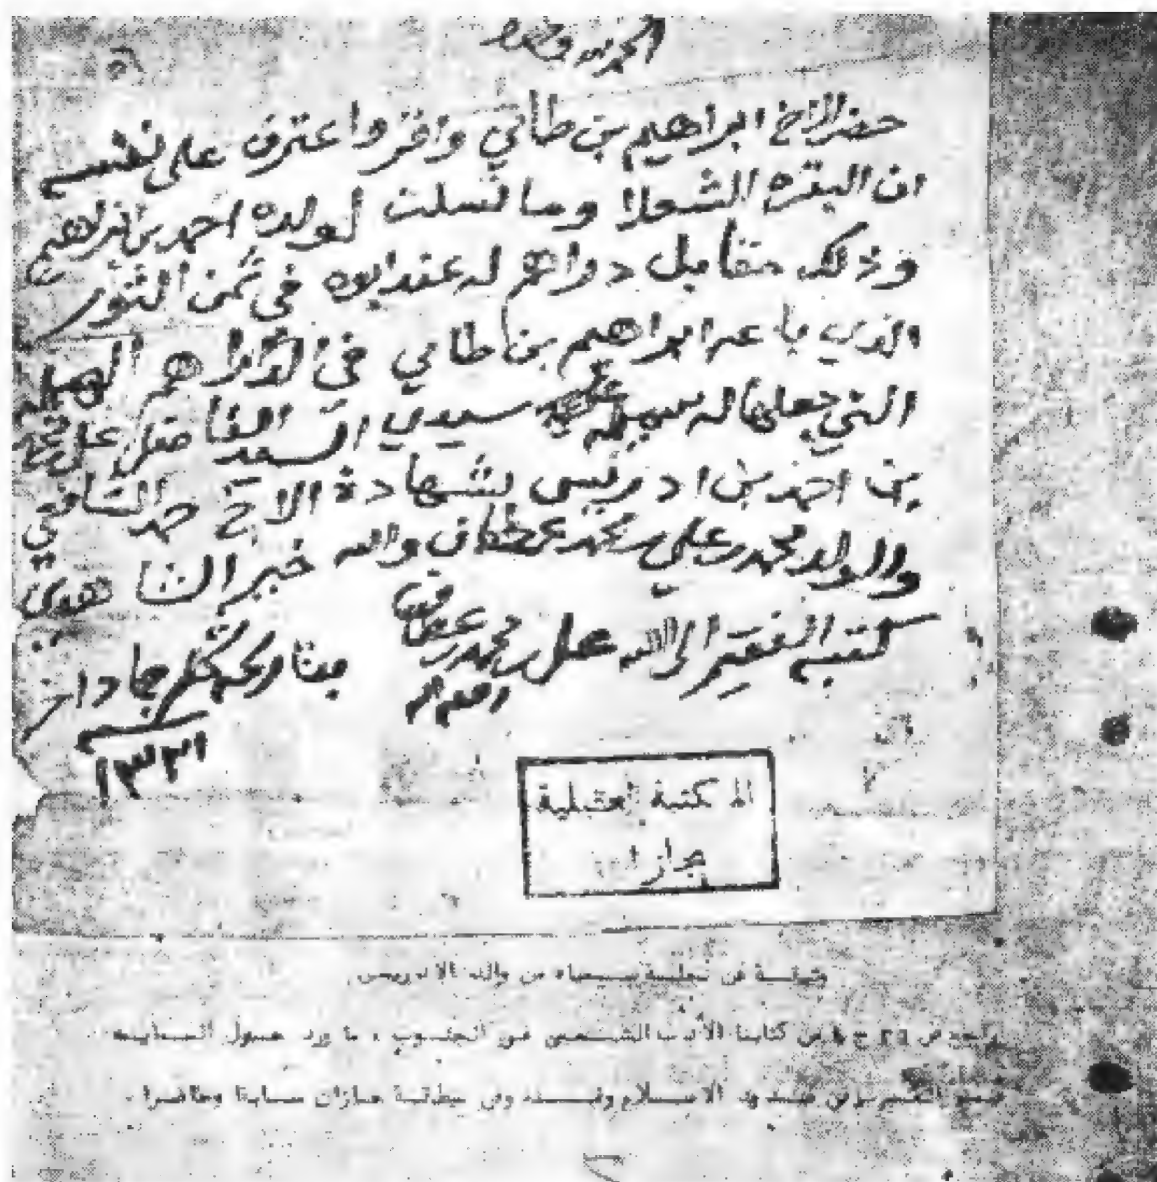 الحمد لله وحده
حضر الاخ ابراهيم بن طاني واقر واعترف على نفسه
ان البقره الشعلا وما نسلت لولده احمد بن ابراهيم
وذلك مقابل دراهم له عند ابوه في ثمن الثور
الذي باعه ابراهيم بن طاني في الدراهم
التي جعلها له سيدي السيد
بن احمد بن ادريس بشهادة الاخ حمد
والولد محمد علي محمد والله خير الشاهدين
كتبه الفقير الى الله علي محمد
بتاريخه جماد اخر
١٣٣١
المكتبة العقيلية
بجازان
وثيقة عن من والد الادريسي
راجع ص ٢٦ ج من كتابنا الأدب الشعبي في الجنوب ، ما ورد حول
الاسلام وفي مقاطعة جازان سابقا وحاضرا .